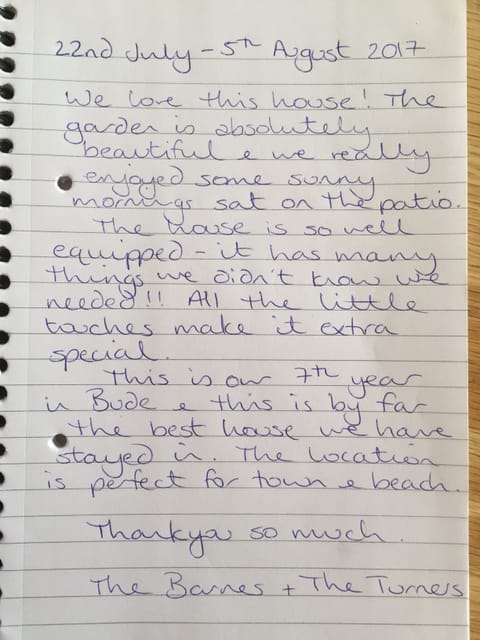 22nd July - 5th August 2017
We love this house! The
garden is absolutely
beautiful & we really
enjoyed some sunny
mornings sat on the patio.
The house is so well
equipped - it has many
things we didn't know we
needed!! All the little
touches make it extra
special.
This is our 7th year
in Bude & this is by far
the best house we have
stayed in. The location
is perfect for town & beach.
Thankyou so much.
The Barnes + The Turners